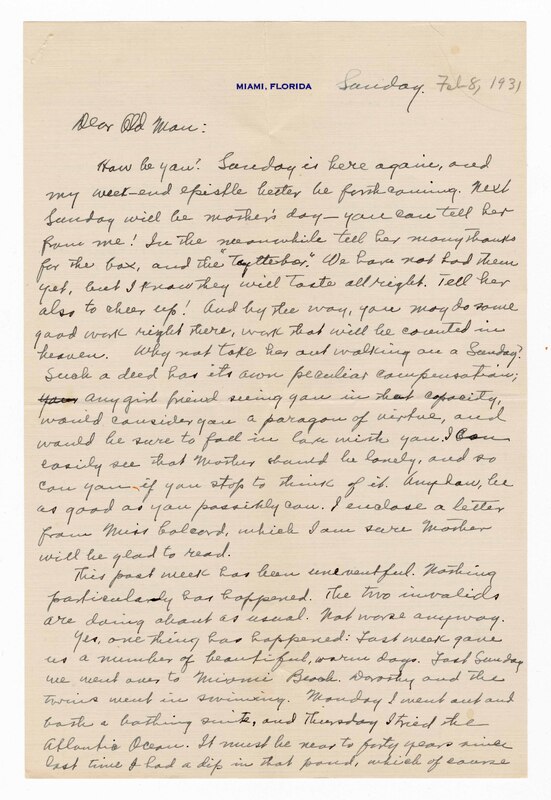 MIAMI, FLORIDA
Sunday. Feb 8, 1931
Dear Old Man:
How be you? Sunday is here again, and
my week-end epistle better be forthcoming. Next
Sunday will be mother's day — you can tell her
from me! In the meanwhile tell her many thanks
for the box, and the "lyttebor." We have not had them
yet, but I know they will taste all right. Tell her
also to cheer up! And by the way, you may do some
good work right there, work that will be counted in
heaven. Why not take her out walking on a Sunday?
Such a deed has its own peculiar compensation;
any girl friend seeing you in that capacity,
would consider you a paragon of virtue, and
would be sure to fall in love with you. I can
easily see that Mother should be lonely, and so
can you if you stop to think of it. Anyhow, be
as good as you possibly can. I enclose a letter
from Miss Colcord, which I am sure Mother
will be glad to read.
This past week has been uneventful. Nothing
particular has happened. The two invalids
are doing about as usual. Not worse anyway.
Yes, one thing has happened: Last week gave
us a number of beautiful, warm days. Last Sunday
we went over to Miami Beach. Dorothy and the
twins went in swimming. Monday I went out and
bath a bathing suite, and Thursday I tried the
Atlantic Ocean. It must be near to forty years since
last time I had a dip in that pond, which of course